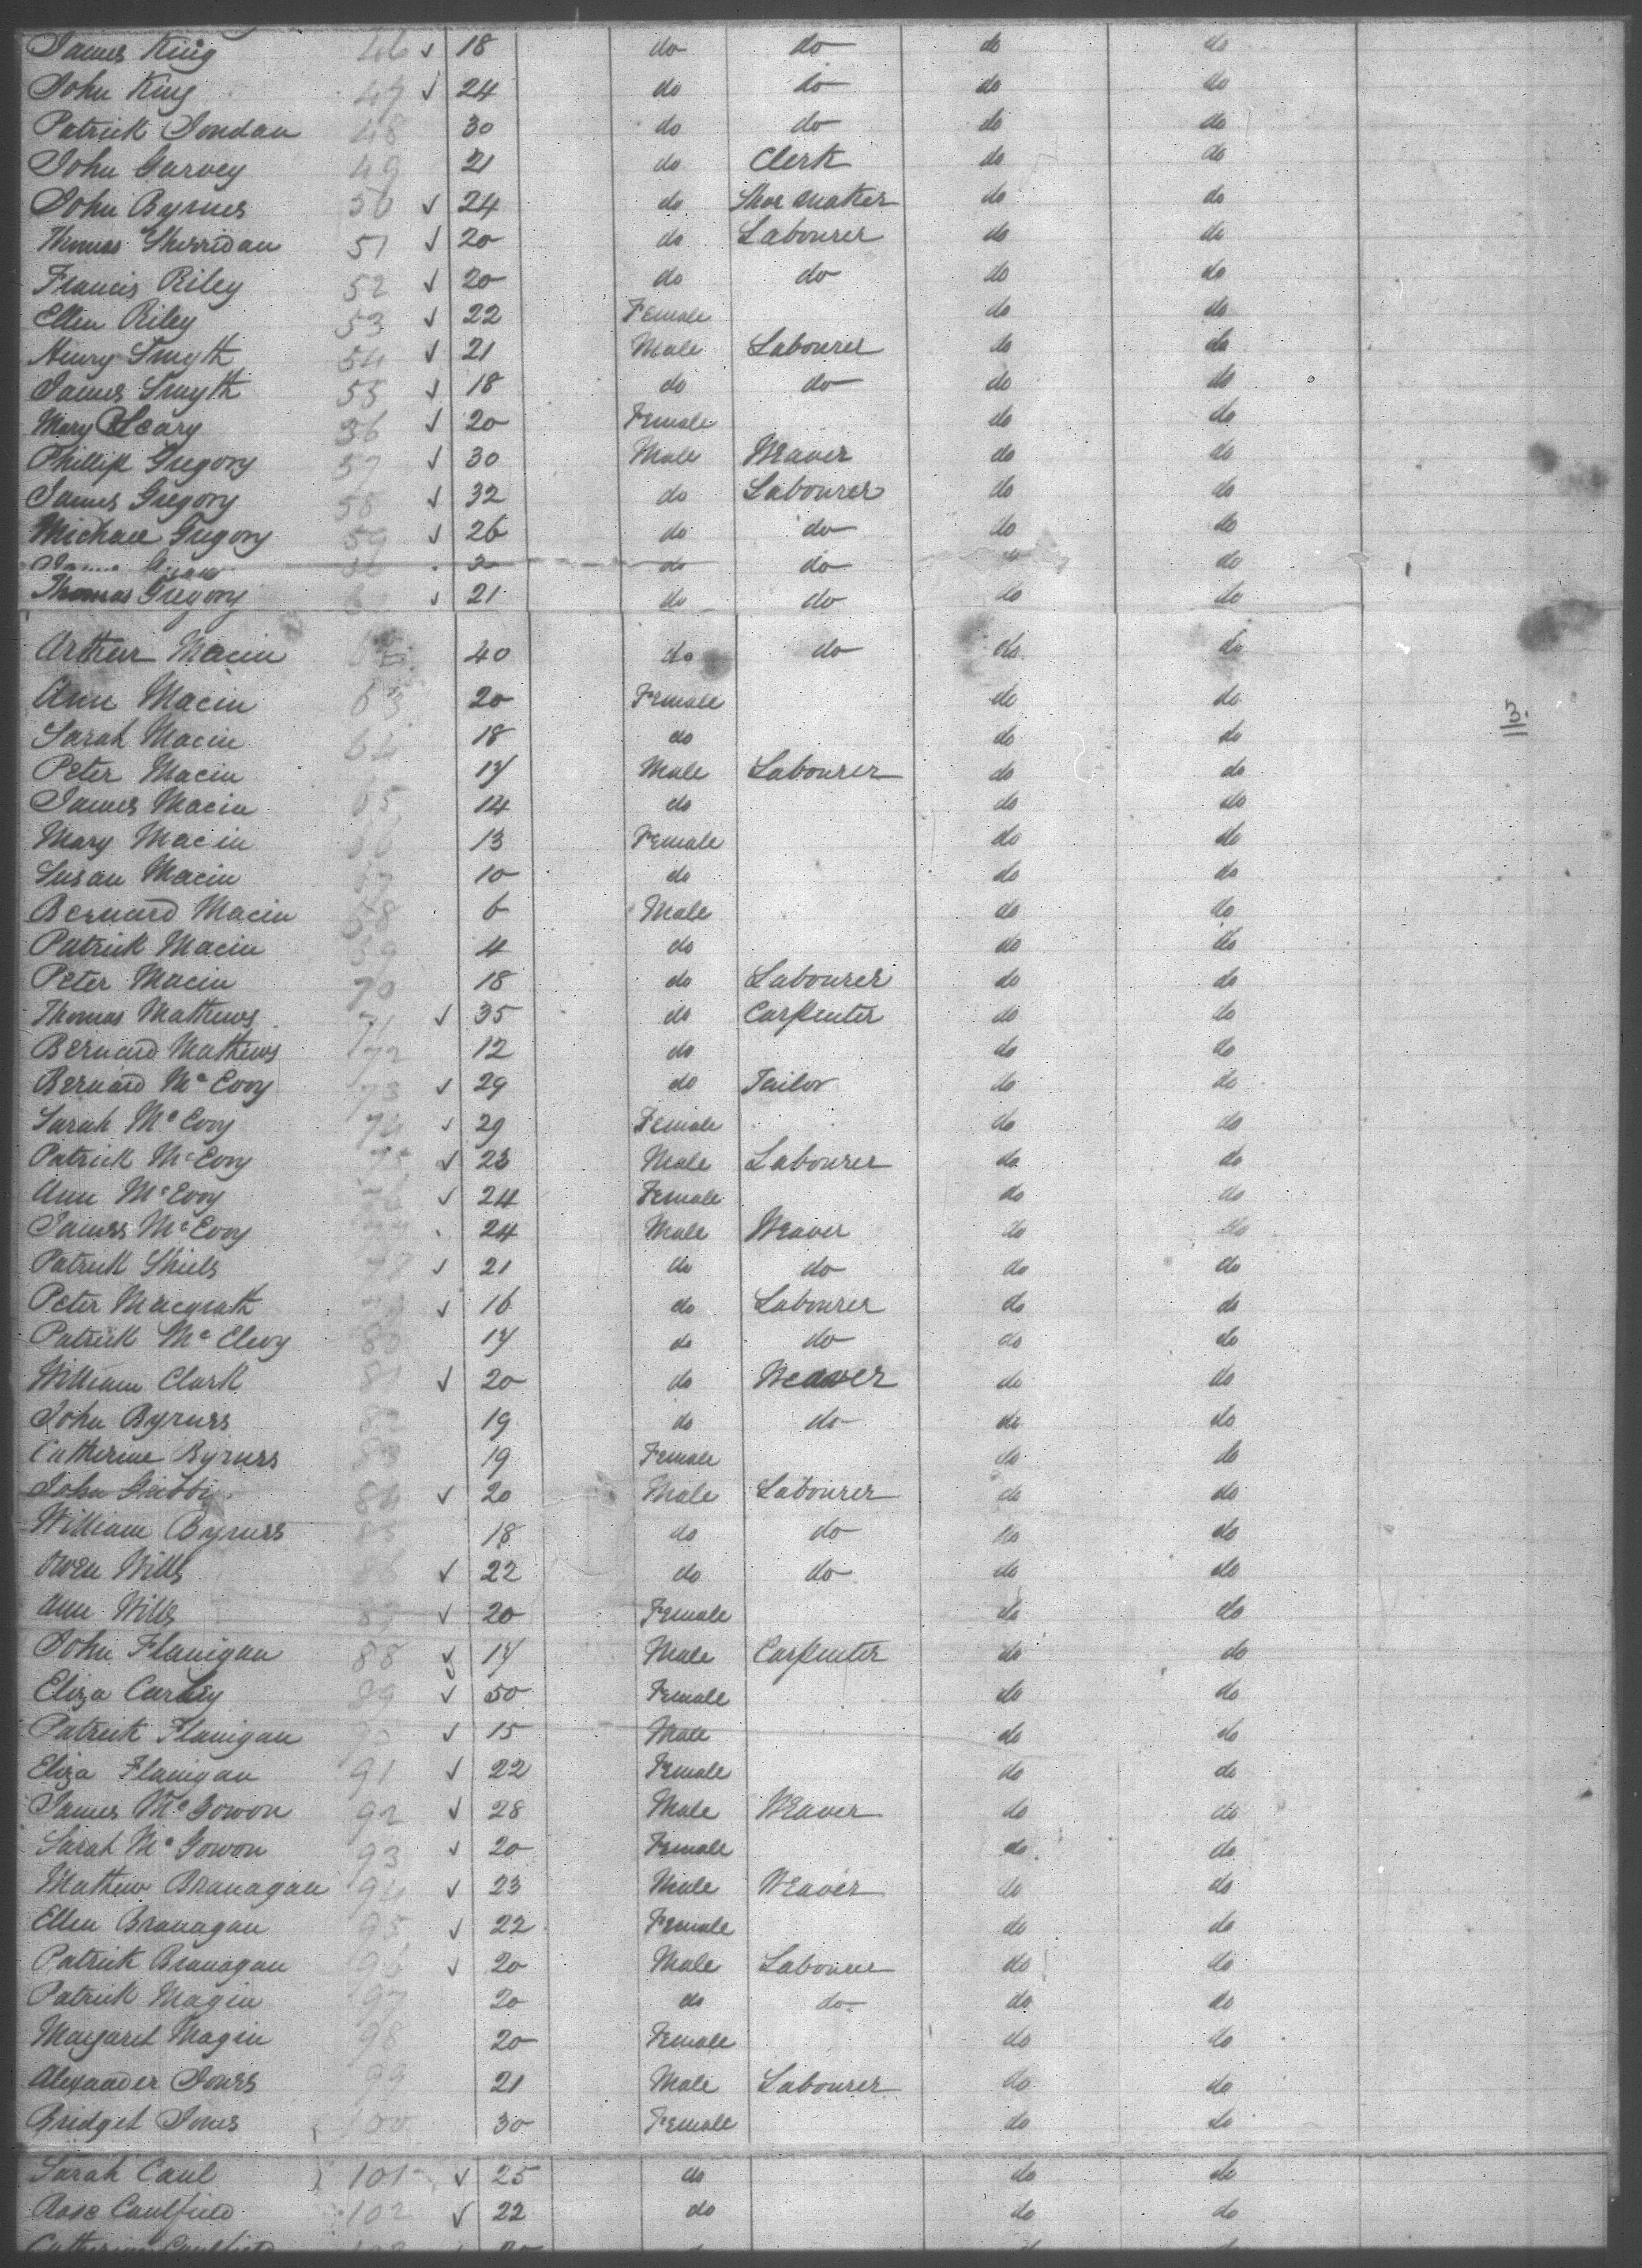 James King 46 √ 18 do do do do
John King 47 √ 24 do do do do
Patrick Jondan 48 30 do do do do
John Garvey 49 21 do Clerk do do
John Byrnes 50 √ 24 do Shoe maker do do
Thomas Sherridan 51 √ 20 do Labourer do do
Francis Riley 52 √ 20 do do do do
Ellen Riley 53 √ 22 Female do do
Henry Smyth 54 √ 21 Male Labourer do do
James Smyth 55 √ 18 do do do do
Mary Leary 56 √ 20 Female do do
Phillip Gregory 57 √ 30 Male Weaver do do
James Gregory 58 √ 32 do Labourer do do
Michael Gregory 59 √ 26 do do do do
do do do
Thomas Gregory √ 21 do do do do
Arthur Macin 40 do do do do
Ann Macin 63 20 Female do do
3.
Sarah Macin 64 18 do do do
Peter Macin 17 Male Labourer do do
James Macin 65 14 do do do
Mary Macin 66 13 Female do do
Susan Macin 67 10 do do do
Bernard Macin 68 6 Male do do
Patrick Macin 69 4 do do do
Peter Macin 70 18 do Labourer do do
Thomas Mathews 71 √ 35 do Carpenter do do
Bernard Mathews 72 12 do do do
Bernard McEvoy 73 √ 29 do Tailor do do
Sarah McEvoy 74 √ 29 Female do do
Patrick McEvoy 75 √ 23 Male Labourer do do
Ann McEvoy 76 √ 24 Female do do
James McEvoy 77 24 Male Weaver do do
Patrick Shiels 78 √ 21 do do do do
Peter Macgrath 79 √ 16 do Labourer do do
Patrick McElevy 80 17 do do do do
William Clark 81 √ 20 do Weaver do do
John Byrness 82 19 do do do do
Catherine Byrness 83 19 Female do do
John 84 √ 20 Male Labourer do do
William Byrness 85 18 do do do do
Owen Wills 86 √ 22 do do do do
Ann Wills 87 √ 20 Female do do
John Flanigan 88 √ 17 Male Carpenter do do
Eliza Carley 89 √ 50 Female do do
Patrick Flanigan 90 √ 15 Male do do
Eliza Flanigan 91 √ 22 Female do do
James McGowon 92 √ 28 Male Weaver do do
Sarah McGowon 93 √ 20 Female do do
Mathew Branagan 94 √ 23 Male Weaver do do
Ellen Branagan 95 √ 22 Female do do
Patrick Branagan 96 √ 20 Male Labourer do do
Patrick Magin 97 20 do do do do
Margaret Magin 98 20 Female do do
Alexander Jones 99 21 Male Labourer do do
Bridget Jones 100 30 Female do do
Sarah Caul 101 √ 25 do do do
Rose Caulfield 102 √ 22 do do do
Catherine Caulfield 103